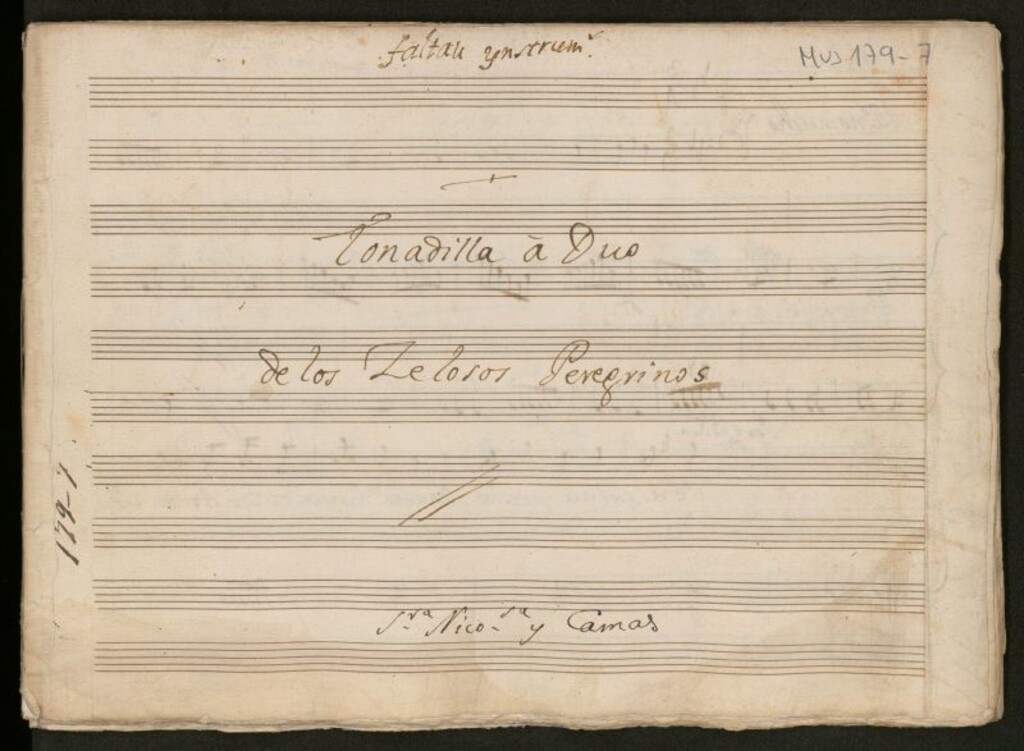 faltan ynstrum.s
Mus 179-7
Tonadilla à Duo
de los Zelosos Peregrinos
179-7
S.ra Nico.sa y Camas